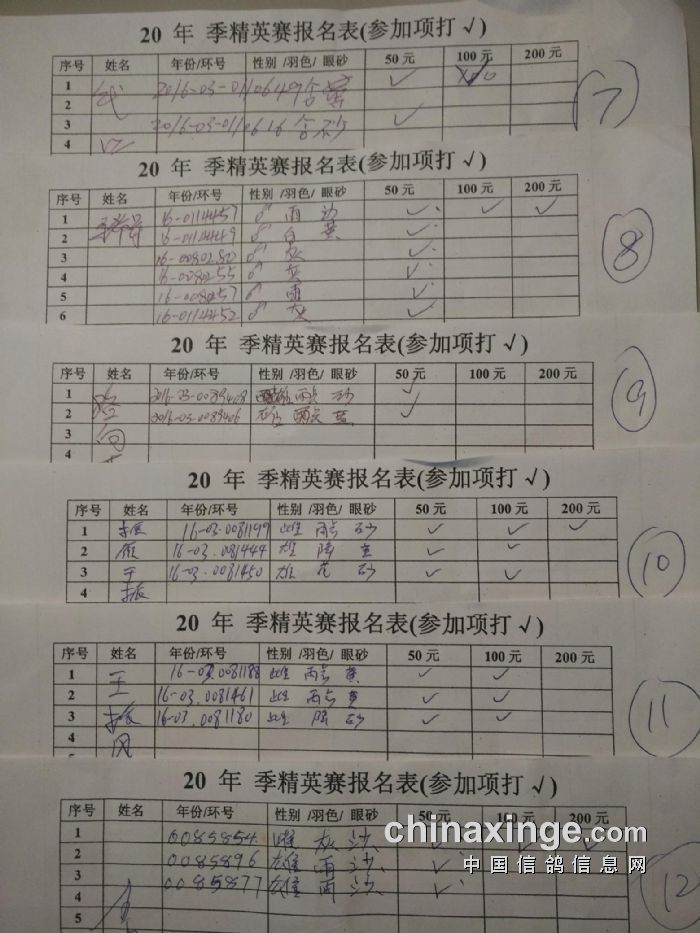 20 年 季精英赛报名表(参加项打 √)
序号 姓名 年份/环号 性别 /羽色/ 眼砂 50 元 100 元 200 元
1 2016-03-0110649 √
2
3 2016-03-0110616 砂 √
4
⑦
20 年 季精英赛报名表(参加项打 √)
序号 姓名 年份/环号 性别 /羽色/ 眼砂 50 元 100 元 200 元
1 16-0114457 ♂ 雨 √ √ √
2 16-0114449 ♂ 白 黄 √
3 16-0080280 ♂ 灰 √
4 16-0080255 ♂ 灰 √
5 16-0080257 ♂ 雨 √
6 16-0114452 ♂ 灰 √
⑧
20 年 季精英赛报名表(参加项打 √)
序号 姓名 年份/环号 性别 /羽色/ 眼砂 50 元 100 元 200 元
1 雨点 砂 √
2 2016-03-0089406 √
3
4
⑨
20 年 季精英赛报名表(参加项打 √)
序号 姓名 年份/环号 性别 /羽色/ 眼砂 50 元 100 元 200 元
1 16-03.0081199 雌 雨点 砂 √ √ √
2 16-03.0081444 雄 √ √
3 16-03.0081450 雄 花 砂 √ √
4 振
⑩
20 年 季精英赛报名表(参加项打 √)
序号 姓名 年份/环号 性别 /羽色/ 眼砂 50 元 100 元 200 元
1 王 16-03.0081188 雌 雨点 黄 √ √
2 16-03.0081461 雌 雨点 黄 √ √
3 振 16-03.0081180 雌 砂 √ √
4 风
⑪
20 年 季精英赛报名表(参加项打 √)
序号 姓名 年份/环号 性别 /羽色/ 眼砂 50 元 100 元 200 元
1 0085854 雌 灰 沙 √ √ √
2 0085896 雄 雨 沙 √
3 0085877 雄 雨 沙 √
4
5
⑫
chinaxinge.com
中国信鸽信息网